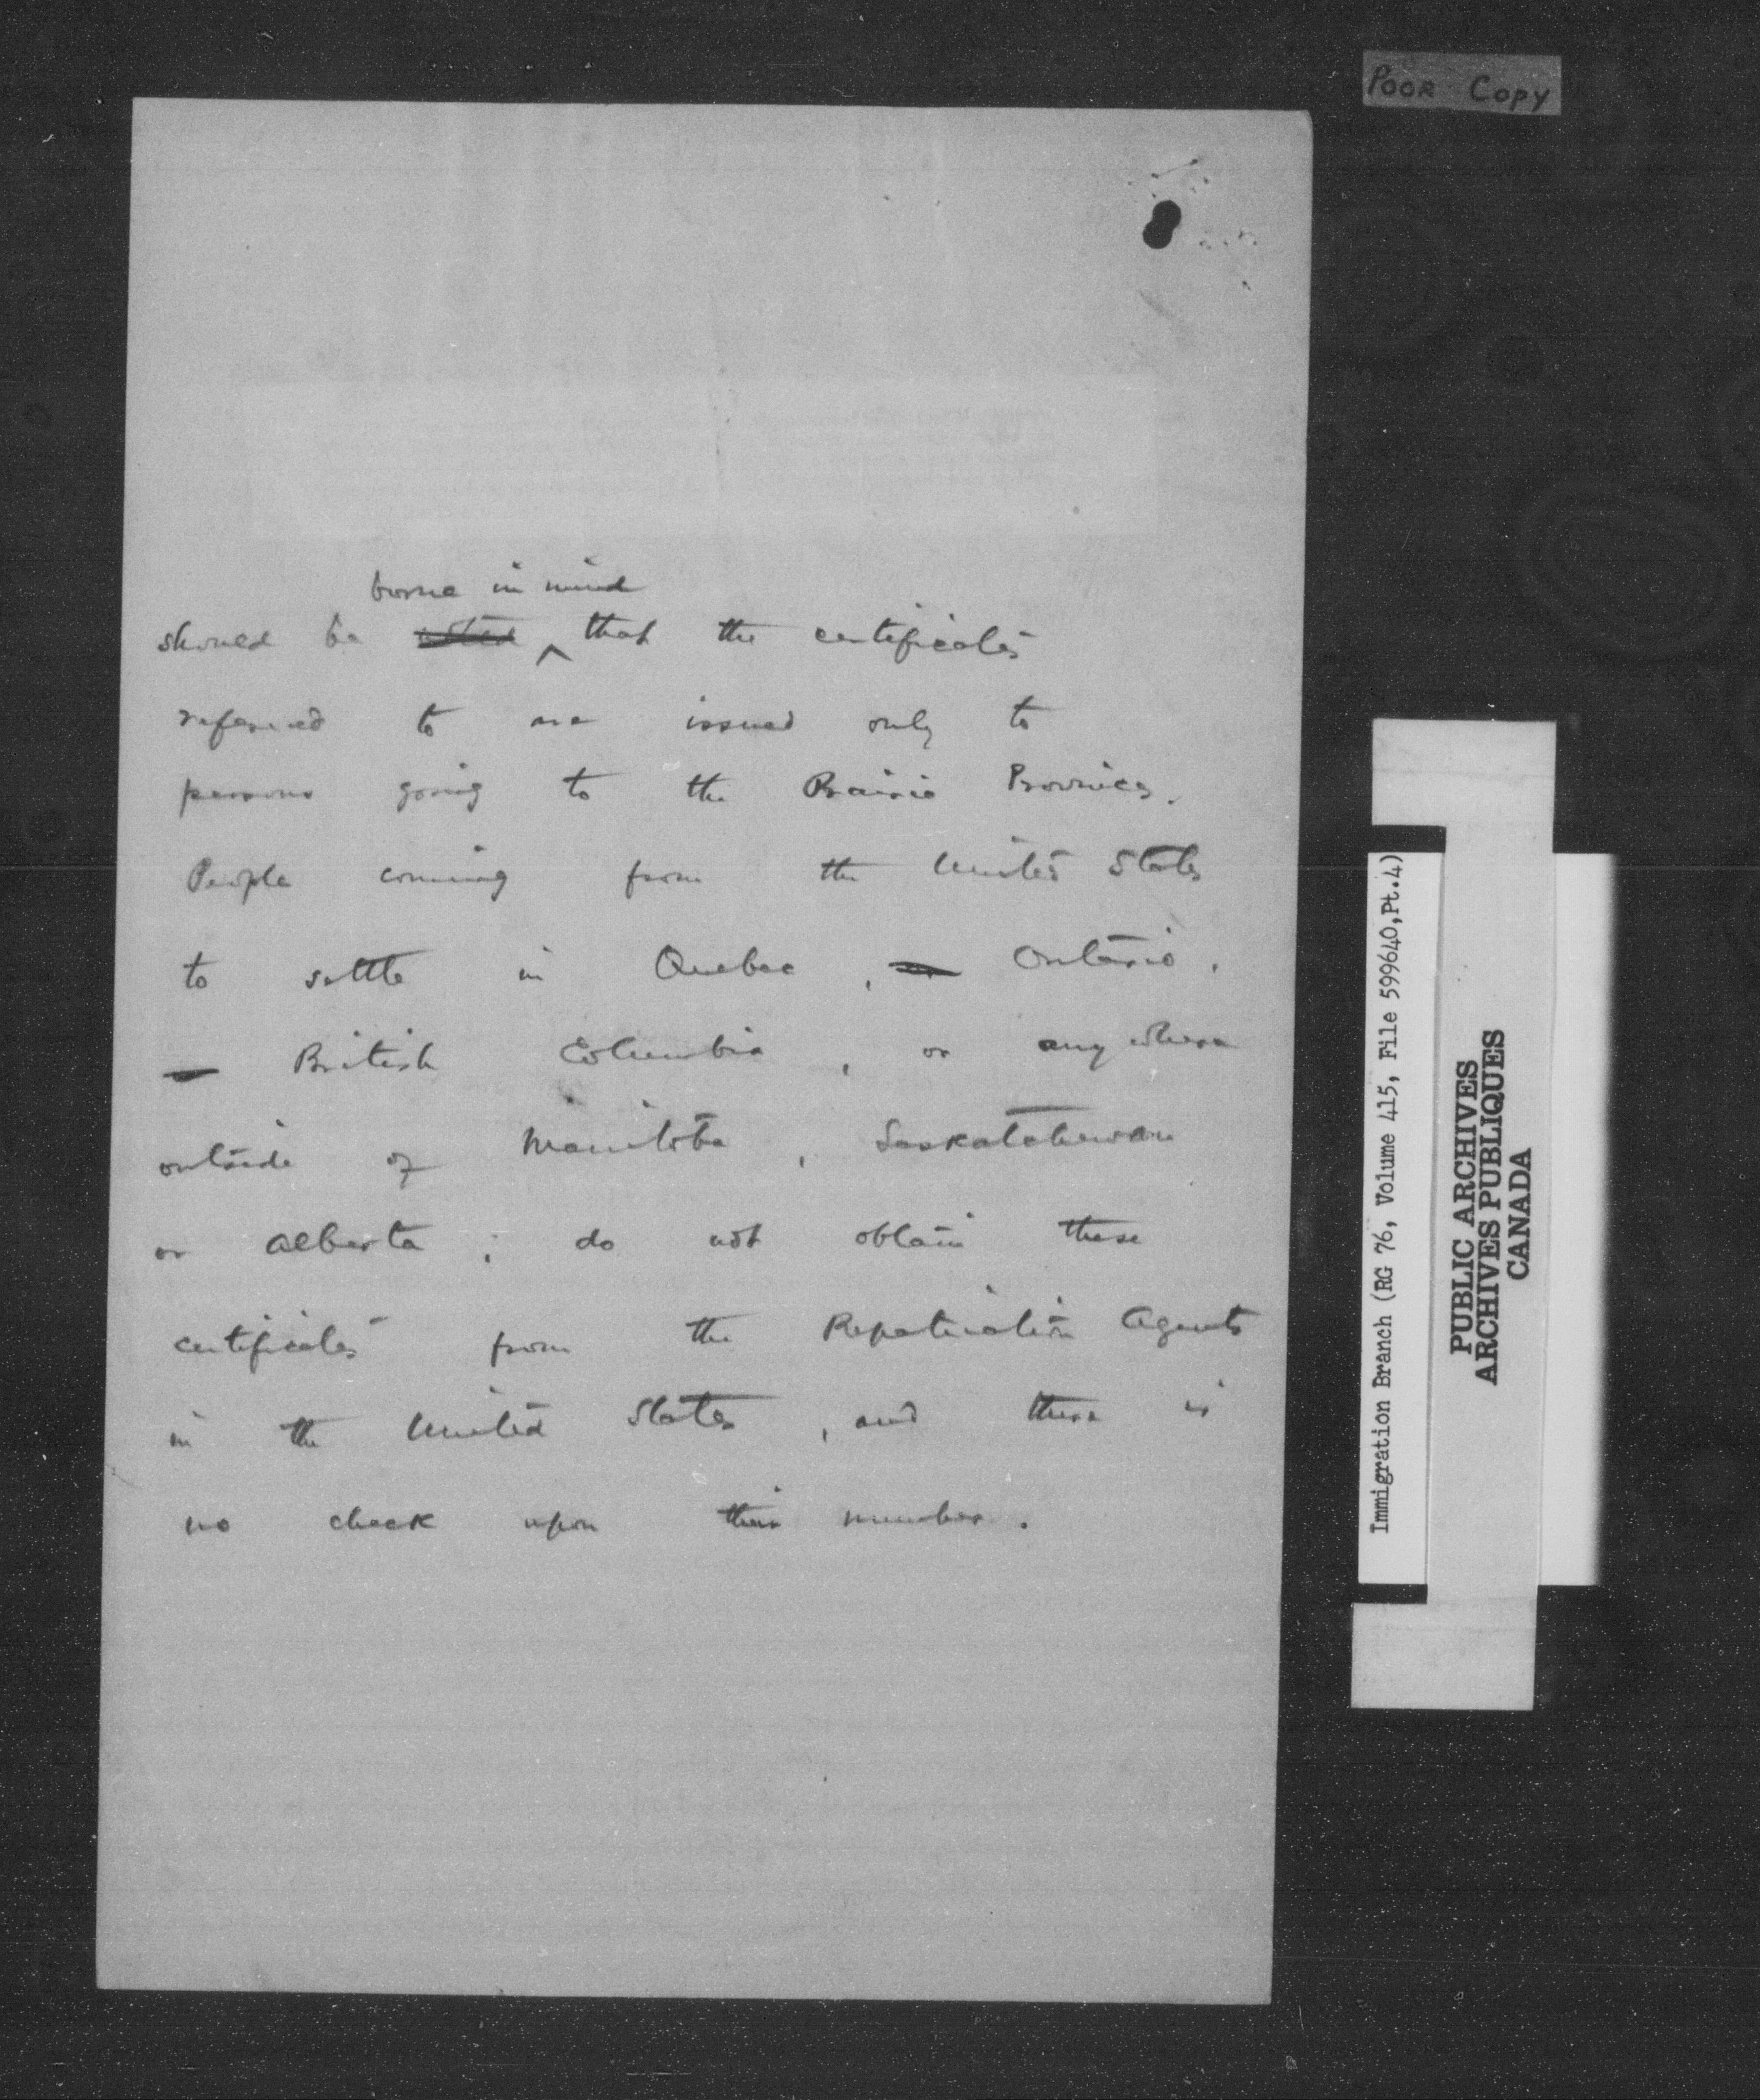 POOR COPY
borne in mind
should be noted ^ that the certificates
referred to are issued only to
persons going to the Prairie Provinces.
People coming from the United States
to settle in Quebec, or Ontario,
British Columbia, or anywhere
outside of Manitoba, Saskatchewan
or Alberta; do not obtain these
certificates from the Repatriation Agents
in the United States, and there is
no check upon their number.
Immigration Branch (RG 76, Volume 415, File 599640,Pt.4)
PUBLIC ARCHIVES
ARCHIVES PUBLIQUES
CANADA